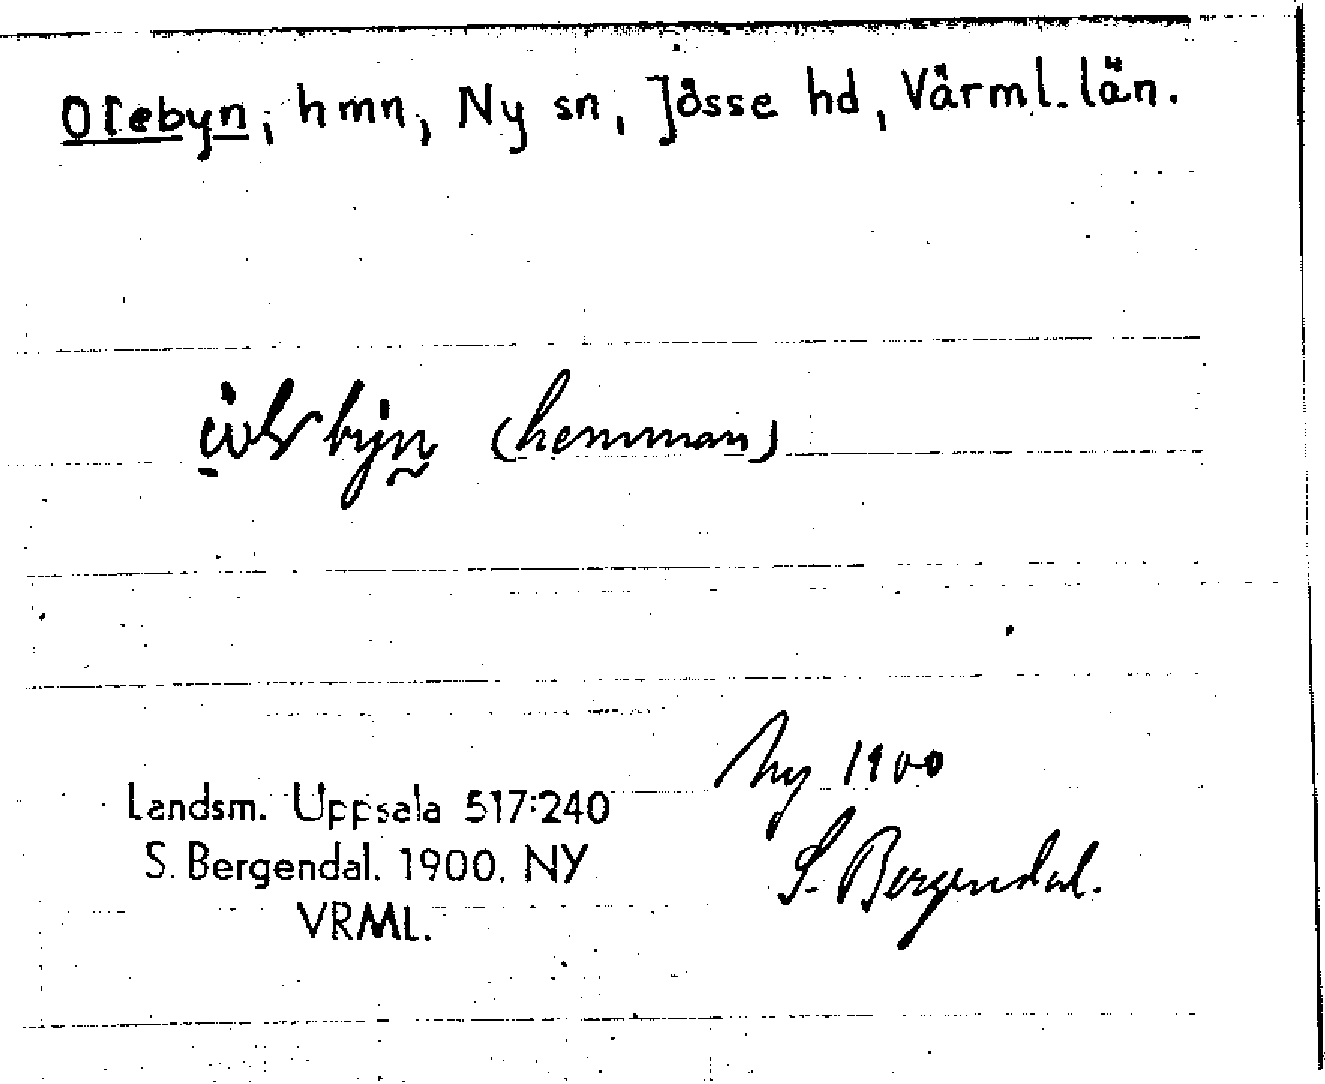 Olebyn, hmn, Ny sn, Jösse hd, Värml. län.
(hemman)
Ny 1900
S. Bergendal.
Landsm. Uppsala 517:240
S. Bergendal. 1900. NY
VRML.